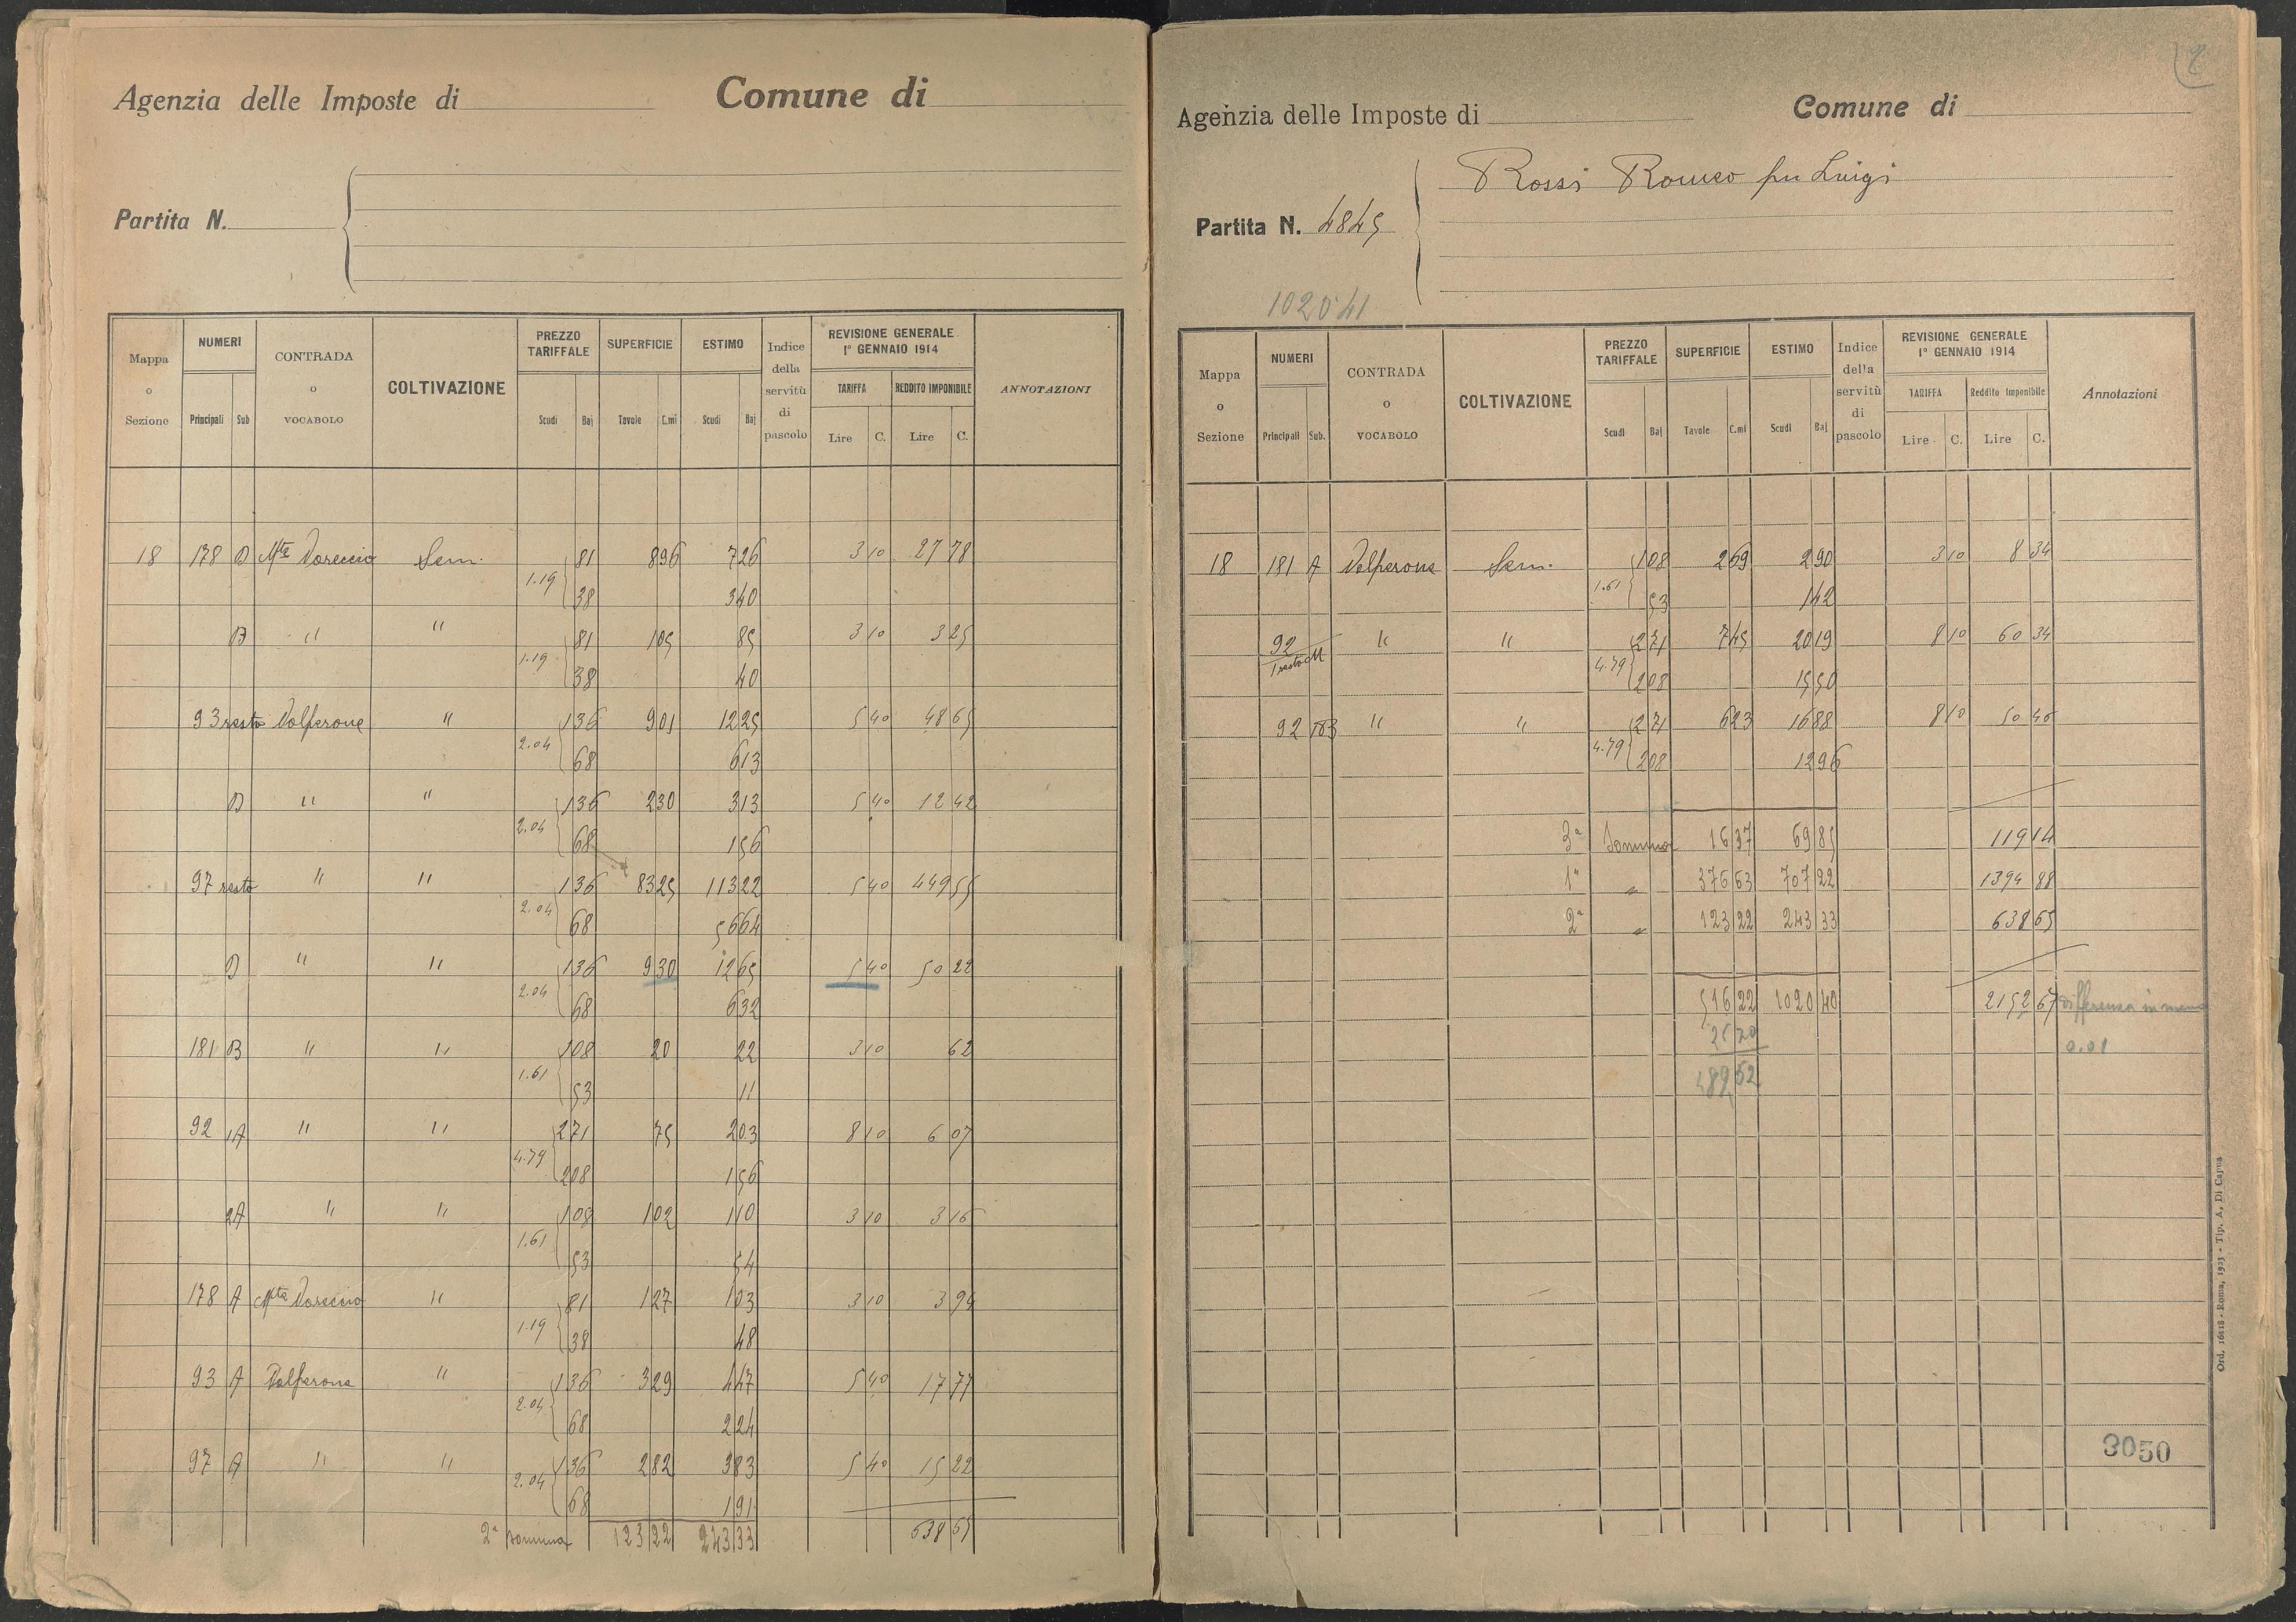 Agenzia delle Imposte di
Comune di
Partita N.
Mappa o Sezione
NUMERI
Principali Sub
CONTRADA o VOCABOLO
COLTIVAZIONE
PREZZO TARIFFALE
Scudi Baj
SUPERFICIE
Tavole C.mi
ESTIMO
Scudi Baj
Indice della servitù di pascolo
REVISIONE GENERALE 1° GENNAIO 1914
TARIFFA
Lire C.
REDDITO IMPONIBILE
Lire C.
ANNOTAZIONI
18 178 Sem. 81 896 7 26 3 10 27 78
1.19
38 3 40
B " " 81 105 85 3 10 3 25
1.19
38 40
93 resto Valperone " 136 901 12 25 5 40 48 65
2.04
68 6 13
" " 136 2 30 3 13 5 40 12 42
2.04
68 1 56
97 resto " " 136 83 25 113 22 5 40 449 55
2.04
68 56 64
" " 136 9 30 12 65 5 40 50 22
2.04
68 6 32
181 B " " 108 20 22 3 10 62
1.61
53 11
92 1A " " 271 75 2 03 8 10 6 07
4.79
208 1 56
2A " " 108 1 02 1 10 3 10 3 16
1.61
53 54
178 A " 81 1 27 1 03 3 10 3 94
1.19
38 48
93 A Valperone " 136 3 29 4 47 5 40 17 77
2.04
68 2 24
97 A " " 136 2 82 3 83 5 40 15 22
2.04
68 1 91
2ª somma 123 22 243 33 638 65
Agenzia delle Imposte di
Comune di
Rossi Romeo fu Luigi
Partita N. 4845
1020.41
Mappa o Sezione
NUMERI
Principali Sub.
CONTRADA o VOCABOLO
COLTIVAZIONE
PREZZO TARIFFALE
Scudi Baj
SUPERFICIE
Tavole C.mi
ESTIMO
Scudi Baj
Indice della servitù di pascolo
REVISIONE GENERALE 1° GENNAIO 1914
TARIFFA
Lire C.
Reddito Imponibile
Lire C.
Annotazioni
18 181 A Valperone Sem. 108 2 69 2 90 3 10 8 34
1.61
53 1 42
92 " " 271 7 45 20 19 8 10 60 34
4.79
208 15 50
92 " " 271 6 23 16 88 8 10 50 46
4.79
208 12 96
3ª Somma 16 37 69 85 119 14
1ª " 376 63 707 22 1394 88
2ª " 123 22 243 33 638 65
516 22 1020 40 2152 67 differenza in meno
0.01
489 52
3050
Ord. 16118 - Roma, 1923 - Tip. A. Di Capua